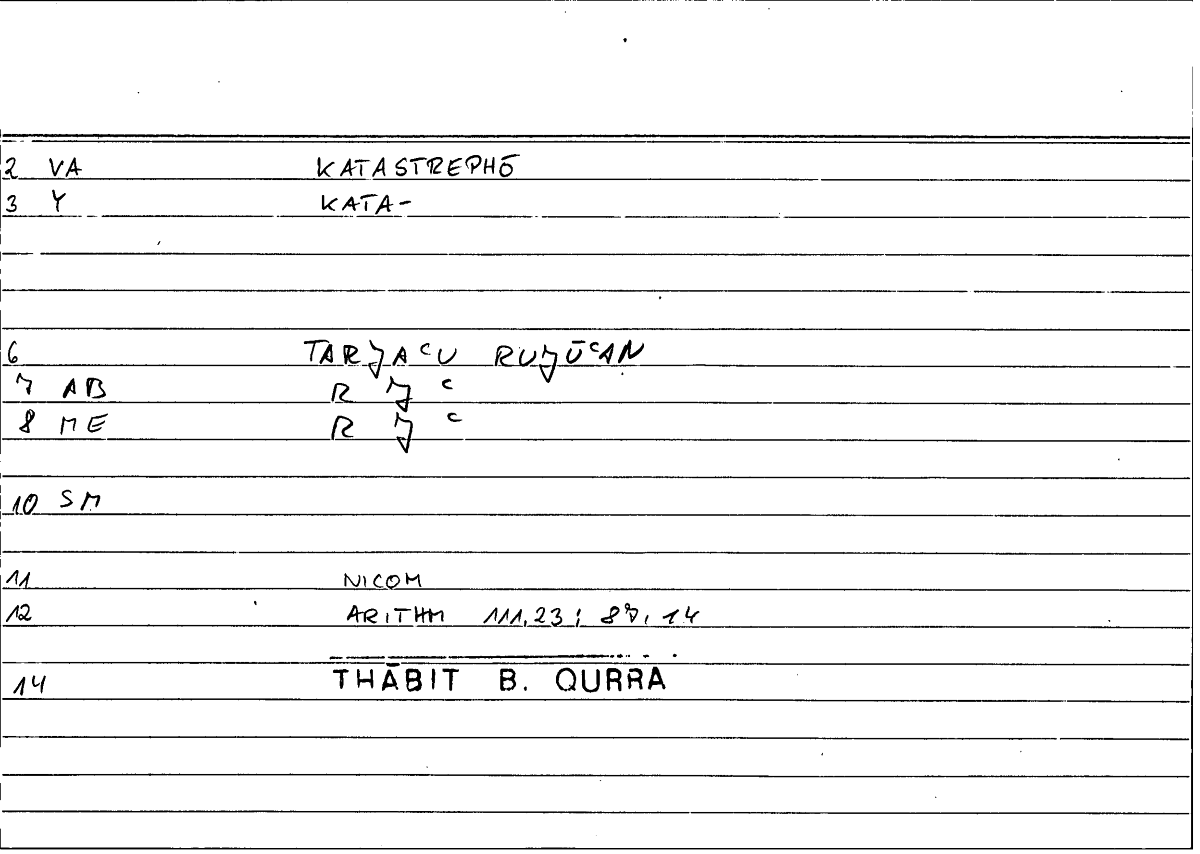 2 VA KATASTREPHŌ
3 Y KATA-
6 TARǦAᶜU RUǦŪᶜAN
7 AB R Ǧ ᶜ
8 ME R Ǧ ᶜ
10 SM
11 NICOM
12 ARITHM 111,23; 87,14
14 THĀBIT B. QURRA